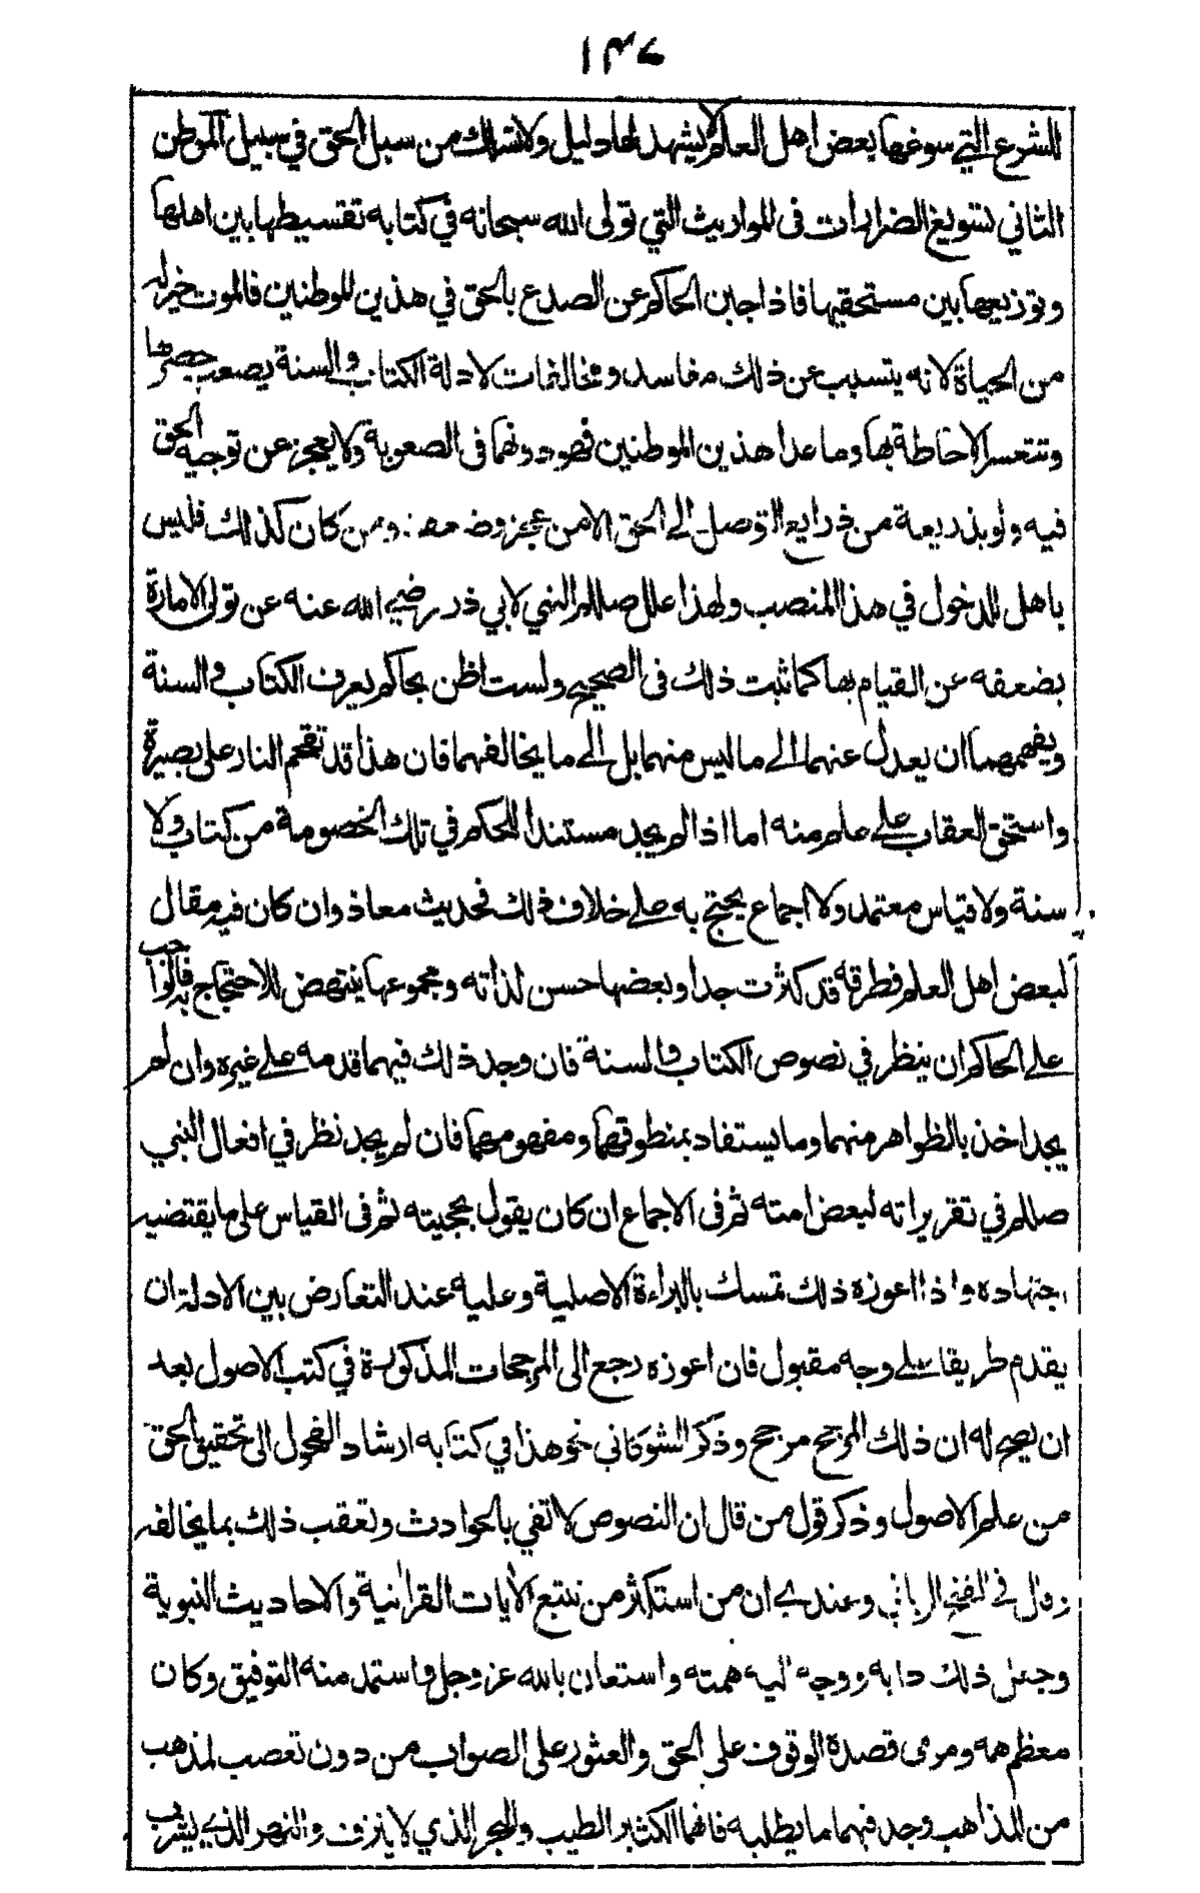 ١٣٧
للشرع التي سوغها بعض اهل العلم لا يشهد لها دليل ولا تسلك من سبل الحق في سبيل الموطن
الثاني تسويغ الضرارات فى المواريث التي تولى الله سبحانه في كتابه تقسيطها بين اهلها
وتوزيعها بين مستحقيها فاذا جبن الحاكم عن الصدع بالحق في هذين الموطنين فالموت خير له
من الحياة لانه يتسبب عن ذلك مفاسد ومخالفات لادلة الكتاب والسنة يصعب حصرها
وتتعسر الاحاطة بها وما عدا هذين الموطنين فهو دونهما فى الصعوبة ولا يعجز عن توجيه الحق
فيه ولو بذريعة من ذرايع التوصل الى الحق الا من عجز وضعف ومن كان كذلك فليس
باهل للدخول في هذا المنصب ولهذا علل صللم النبي لابي ذر رضي الله عنه عن تولى الامارة
بضعفه عن القيام بها كما ثبت ذلك فى الصحيح ولست اظن بحاكم يعرف الكتاب والسنة
ويفهمهما ان يعدل عنهما الى ما ليس منهما بل الى ما يخالفهما فان هذا قد تقحم النار على بصيرة
واستحق العقاب على علم منه اما اذا لم يجد مستندا للحكم في تلك الخصومة من كتاب ولا
سنة ولا قياس معتمد ولا اجماع يحتج به على خلاف ذلك فحديث معاذ وان كان فيه مقال
لبعض اهل العلم فطرقه قد كثرت جدا وبعضها حسن لذاته ومجموعها ينتهض للاحتجاج به فالواجب
على الحاكم ان ينظر في نصوص الكتاب والسنة فان وجد ذلك فيهما قدمه على غيره وان لم
يجد اخذ بالظواهر منهما وما يستفاد بمنطوقهما ومفهومهما فان لم يجد نظر في افعال النبي
صللم في تقريراته لبعض امته ثم فى الاجماع ان كان يقول بحجيته ثم فى القياس على ما يقتضيه
اجتهاده واذا اعوزه ذلك تمسك بالبراءة الاصلية وعليه عند التعارض بين الادلة ان
يقدم طريقا على وجه مقبول فان اعوزه رجع الى المرجحات المذكورة في كتب الاصول بعد
ان يصح له ان ذلك المرجح مرجح وذكر الشوكاني نحو هذا في كتابه ارشاد الفحول الى تحقيق الحق
من علم الاصول وذكر قول من قال ان النصوص لا تفي بالحوادث وتعقب ذلك بما يخالفه
وقال في الفتح الرباني وعندي ان من استكثر من تتبع الآيات القرانية والاحاديث النبوية
وجعل ذلك دابه ووجه اليه همته واستعان بالله عز وجل واستمد منه التوفيق وكان
معظم همه ومرمى قصده الوقوف على الحق والعثور على الصواب من دون تعصب لمذهب
من المذاهب وجد فيهما ما يطلبه فانهما الكثير الطيب والبحر الذي لا ينزف والنهر الذي يشرب